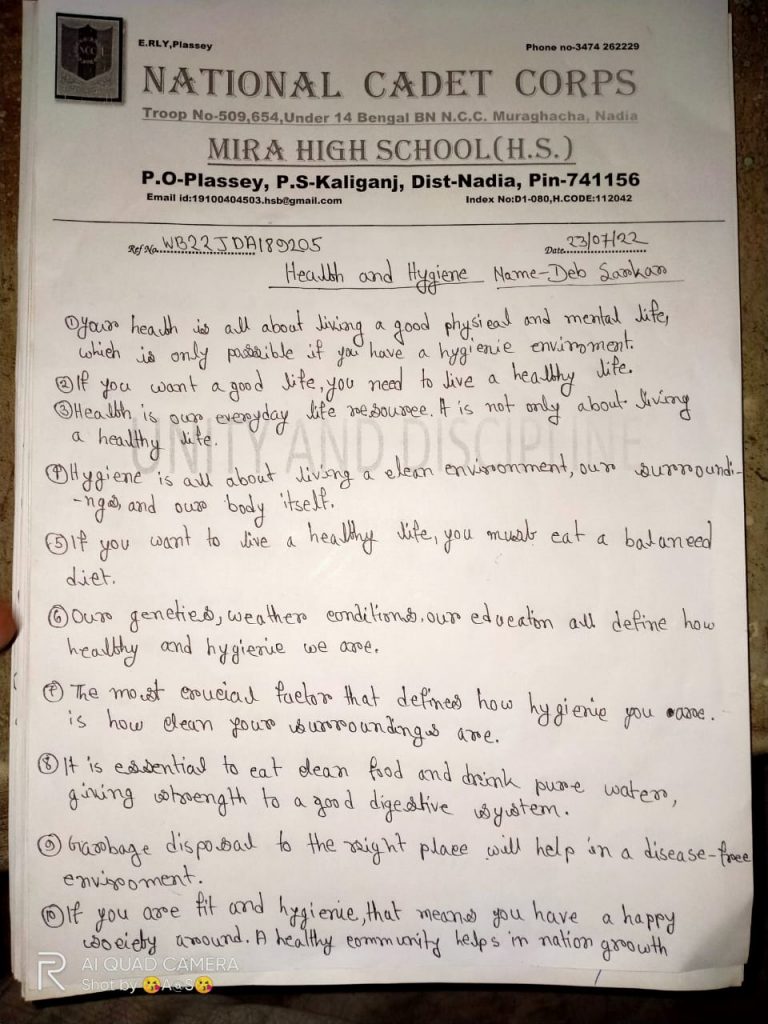 NCC
E.RLY,Plassey Phone no-3474 262229
NATIONAL CADET CORPS
Troop No-509,654,Under 14 Bengal BN N.C.C. Muraghacha, Nadia
MIRA HIGH SCHOOL(H.S.)
P.O-Plassey, P.S-Kaliganj, Dist-Nadia, Pin-741156
Email id:19100404503.hsb@gmail.com Index No:D1-080,H.CODE:112042
Ref No. WB22JDA189205 Date 23/07/22
Health and Hygiene Name-Deb Sarkar
① Your health is all about living a good physical and mental life,
which is only possible if you have a hygienic enviroment.
② If you want a good life, you need to live a healthy life.
③ Health is our everyday life resource. It is not only about living
a healthy life.
UNITY AND DISCIPLINE
④ Hygiene is all about living a clean environment, our surroundi-
-ngs, and our body itself.
⑤ If you want to live a healthy life, you must eat a balanced
diet.
⑥ Our genetics, weather conditions, our educaton all define how
healthy and hygienic we are.
⑦ The most crucial factor that defines how hygienic you are.
is how clean your surroundings are.
⑧ It is essential to eat clean food and drink pure water,
giving strength to a good digestive system.
⑨ Garbage disposal to the right place will help in a disease-free
enviroment.
⑩ If you are fit and hygienic, that means you have a happy
society around. A healthy community helps in nation growth
AI QUAD CAMERA
Shot by 😘A@S😘